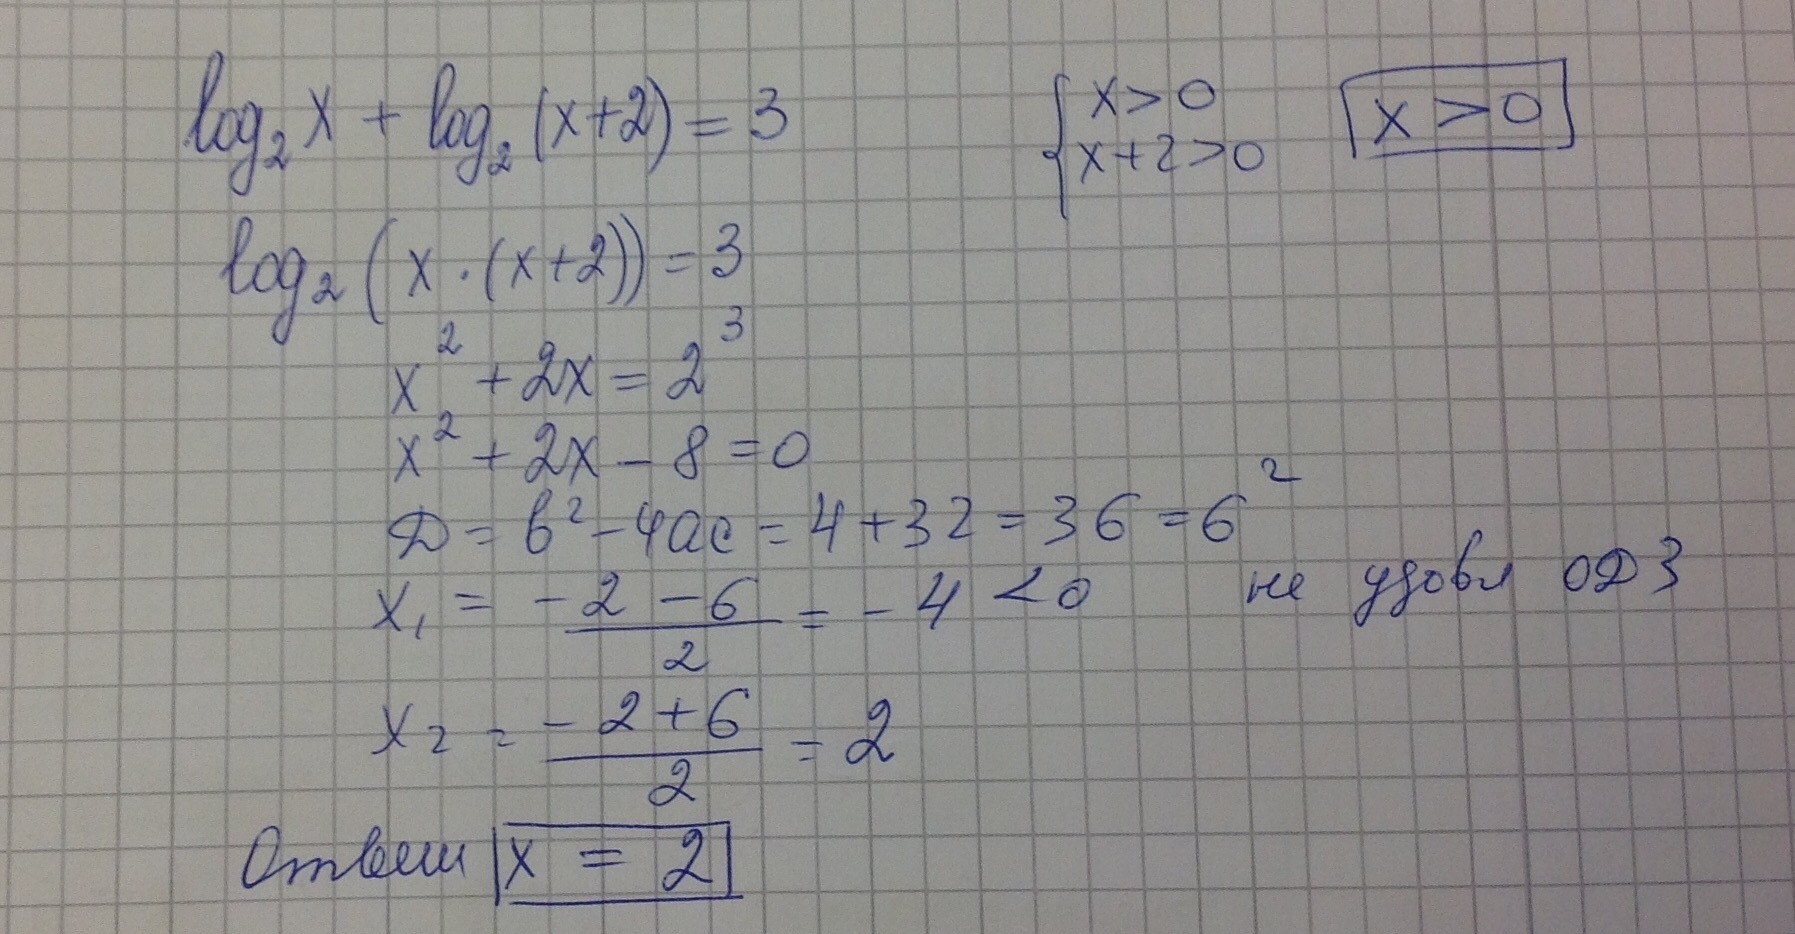 log₂x + log₂(x+2) = 3
{ x > 0
x+2 > 0
x > 0
log₂(x·(x+2)) = 3
x² + 2x = 2³
x² + 2x - 8 = 0
D = b² - 4ac = 4 + 32 = 36 = 6²
x₁ = (-2-6)/2 = -4 < 0 не удовл ОДЗ
x₂ = (-2+6)/2 = 2
Ответ x = 2